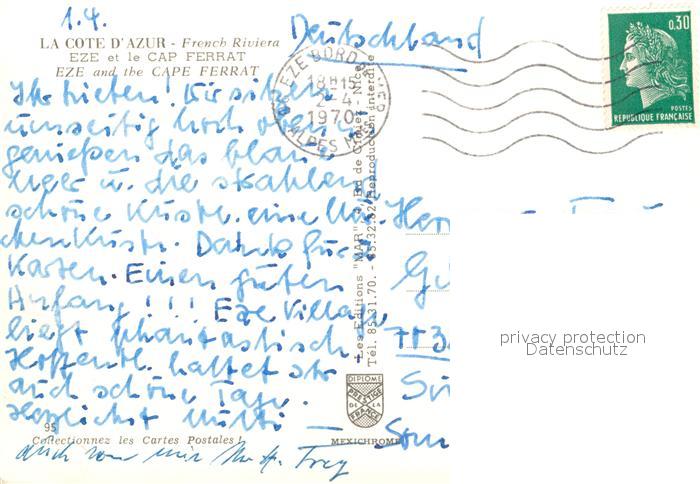 1.4.
Deutschland
LA COTE D'AZUR - French Riviera
EZE et le CAP FERRAT
EZE and the CAPE FERRAT
EZE BORD
18H15
2-4
1970
ALPES
0,30
POSTES
REPUBLIQUE FRANÇAISE
Ihr Lieben! Wir sitzen
umseitig hoch oben,
genießen das blaue
u. die
schöne Küste, eine
Danke für
Karten. Einen guten
Anfang!!! Eze Village
liegt phantastisch.
Hoffentl. hattet Ihr
auch schöne Tage.
Herzlichst Mutti
auch von mir
Les Editions "MAR" - Nice
Tél. 85.31.70. - 85.32.82 Reproduction interdite
DIPLOME
PRESTIGE
DE LA
FRANCE
MEXICHROME
95
Collectionnez les Cartes Postales!
privacy protection
Datenschutz